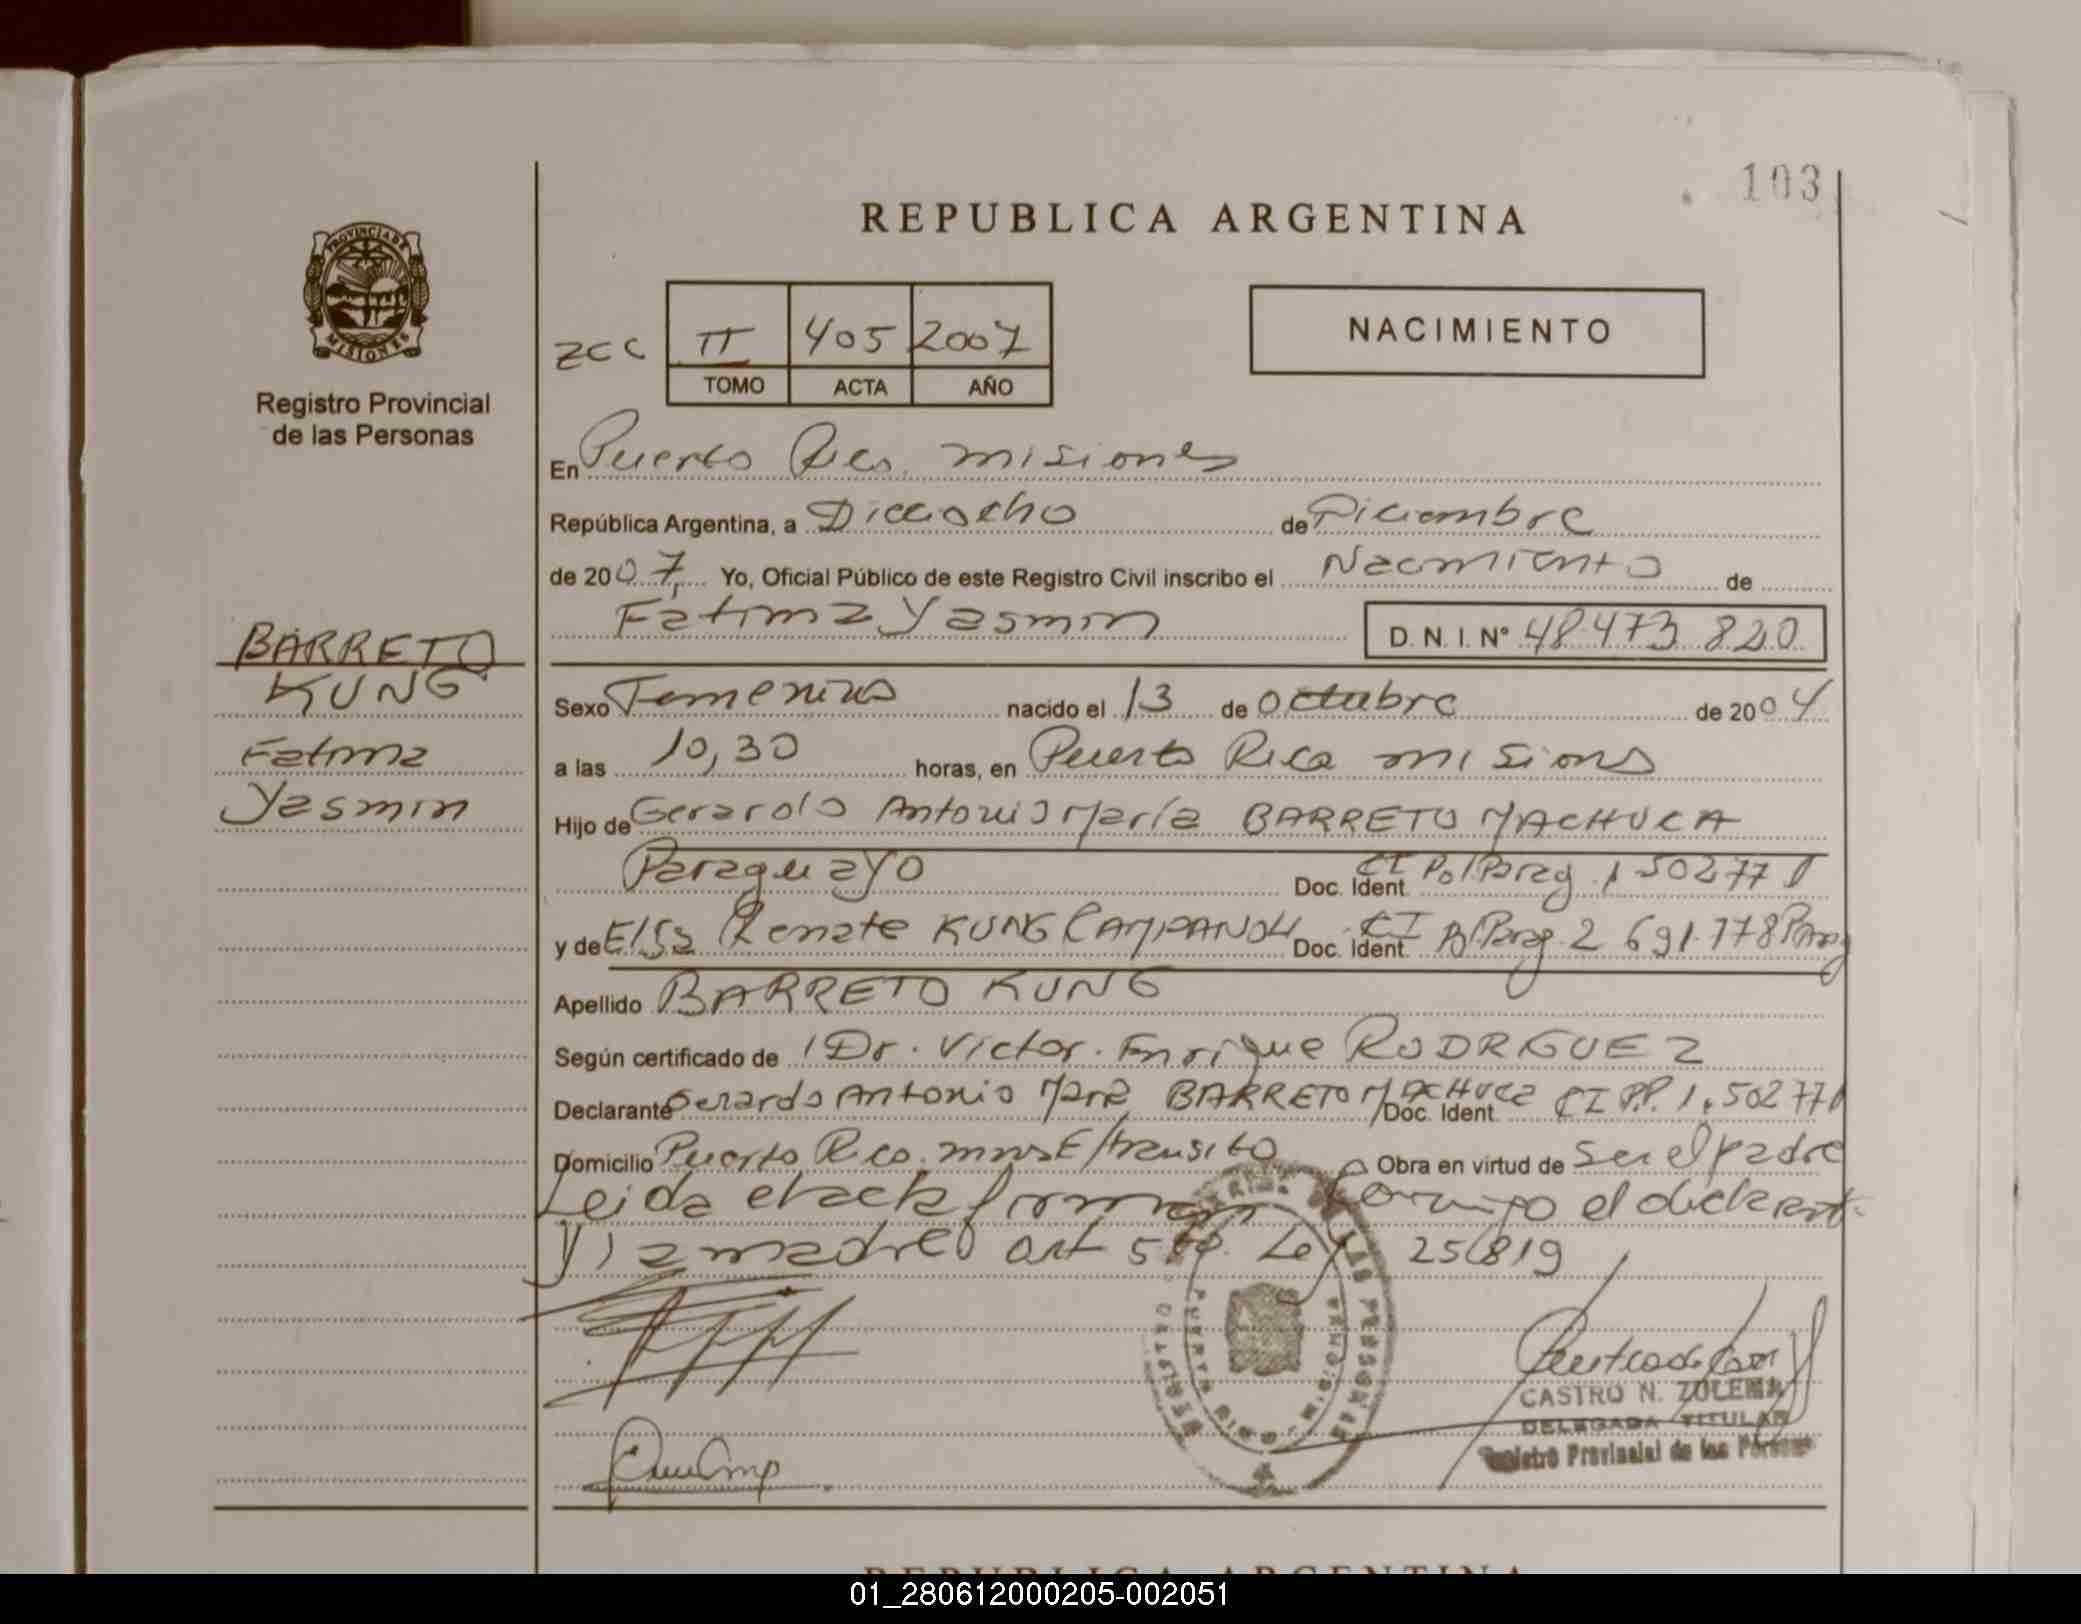 103
REPUBLICA ARGENTINA
PROVINCIA DE
MISIONES
Registro Provincial
de las Personas
ZCC II 405 2007
TOMO ACTA AÑO
NACIMIENTO
En Puerto Rico. Misiones
República Argentina, a Dieciocho de Diciembre
de 2007, Yo, Oficial Público de este Registro Civil inscribo el Nacimiento de
Fatima Yasmin D. N. I. Nº 48.473.820
BARRETO
KUNG
Fatima
Yasmin
Sexo Femenino nacido el 13 de Octubre de 2004
a las 10,30 horas, en Puerto Rico Misiones
Hijo de Gerardo Antonio María BARRETO MACHUCA
Paraguayo Doc. Ident. CI Pol Parag. 1.502771
y de Elsa Renate KUNG Doc. Ident. CI Pol Parag. 2.691.778 Parag
Apellido BARRETO KUNG
Según certificado de Dr. Victor. Enrique RODRGUEZ
Declarante Gerardo Antonio María BARRETO MACHUCA Doc. Ident. CI P.P. 1.502771
Domicilio Puerto Rico. mnes E/transito Obra en virtud de ser el padre
Leida el acta firman conmigo el declarant
y la madre art 5to. Ley 25819
CASTRO N. ZULEMA
DELEGADA TITULAR
Registro Provincial de las Personas
PUERTO RICO
REPUBLICA ARGENTINA
01_280612000205-002051